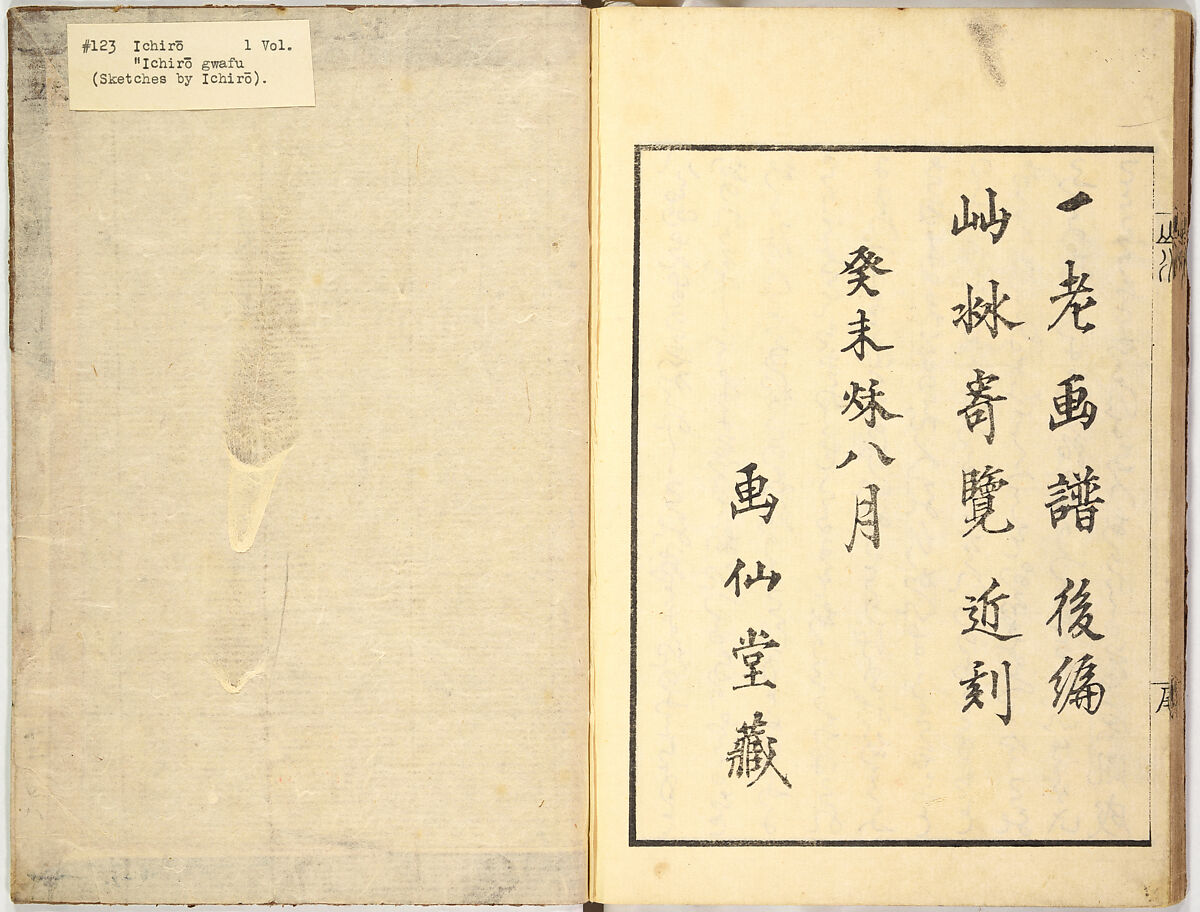 #123 Ichirō 1 Vol.
"Ichirō gwafu
(Sketches by Ichirō).
一老画譜後編
屾沝寄覽近刻
癸未秌八月
画仙堂藏